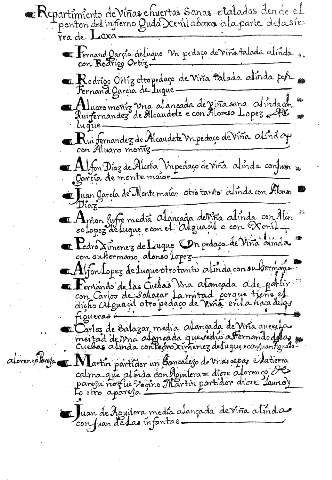 Repartimiento de Viñas e huertas sanas e taladas dende el
ponton del infierno Guda Xenil abaxo a la parte de la sie
rra de Loxa
Fernand Garçia de luque Vn pedaço de Viña talada alinda
con Rodrigo Ortiz
Rodrigo Ortiz otro pedaço de Viña talada alinda
Fernand Garcia de Luque
Alvaro moniz Vna alançada de Viña sana alinda con
Rui fernandez de Alcaudete e con Alonso Lopez
luque
Rui fernandez de Alcaudete Vn pedaço de Viña alinda
con Alvaro moniz
Alfon Diaz de Vn pedaço de Viña alinda con Juan
Garcia de monte maior
Juan Garcia de Monte maior otro tanto alinda con Alonso
Diaz
Anton media alançada de viña alinda con Alon
so Lopez de luque e con el Alguazil e con Xenil
Pedro Ximenez de Luque Vn pedaço de Viña alinda
con su hermano alonso lopez
Alfon Lopez de Luque otro tanto alinda con su hermano
Fernando de las Cuebas Vna alançada a de partir
con Carlos de Salazar la mitad porque tiene el
dicho Alguazil otro pedaço de Viña en la haça de las
figueras
Carlos de Salazar media alançada de Viña
meitad de Vna alançada que se dio a Fernando de las
Cuebas alinda con Pedro Ximenez de luque
Martin partidor un de Vnas cepas e la tierra
calma que alinda con Aguilera dice alorenço
pareja no fue Vezino Martin partidor dice
lo otro apareja
Juan de Aguilera media alançada de viña alinda
con Juan de las infantas